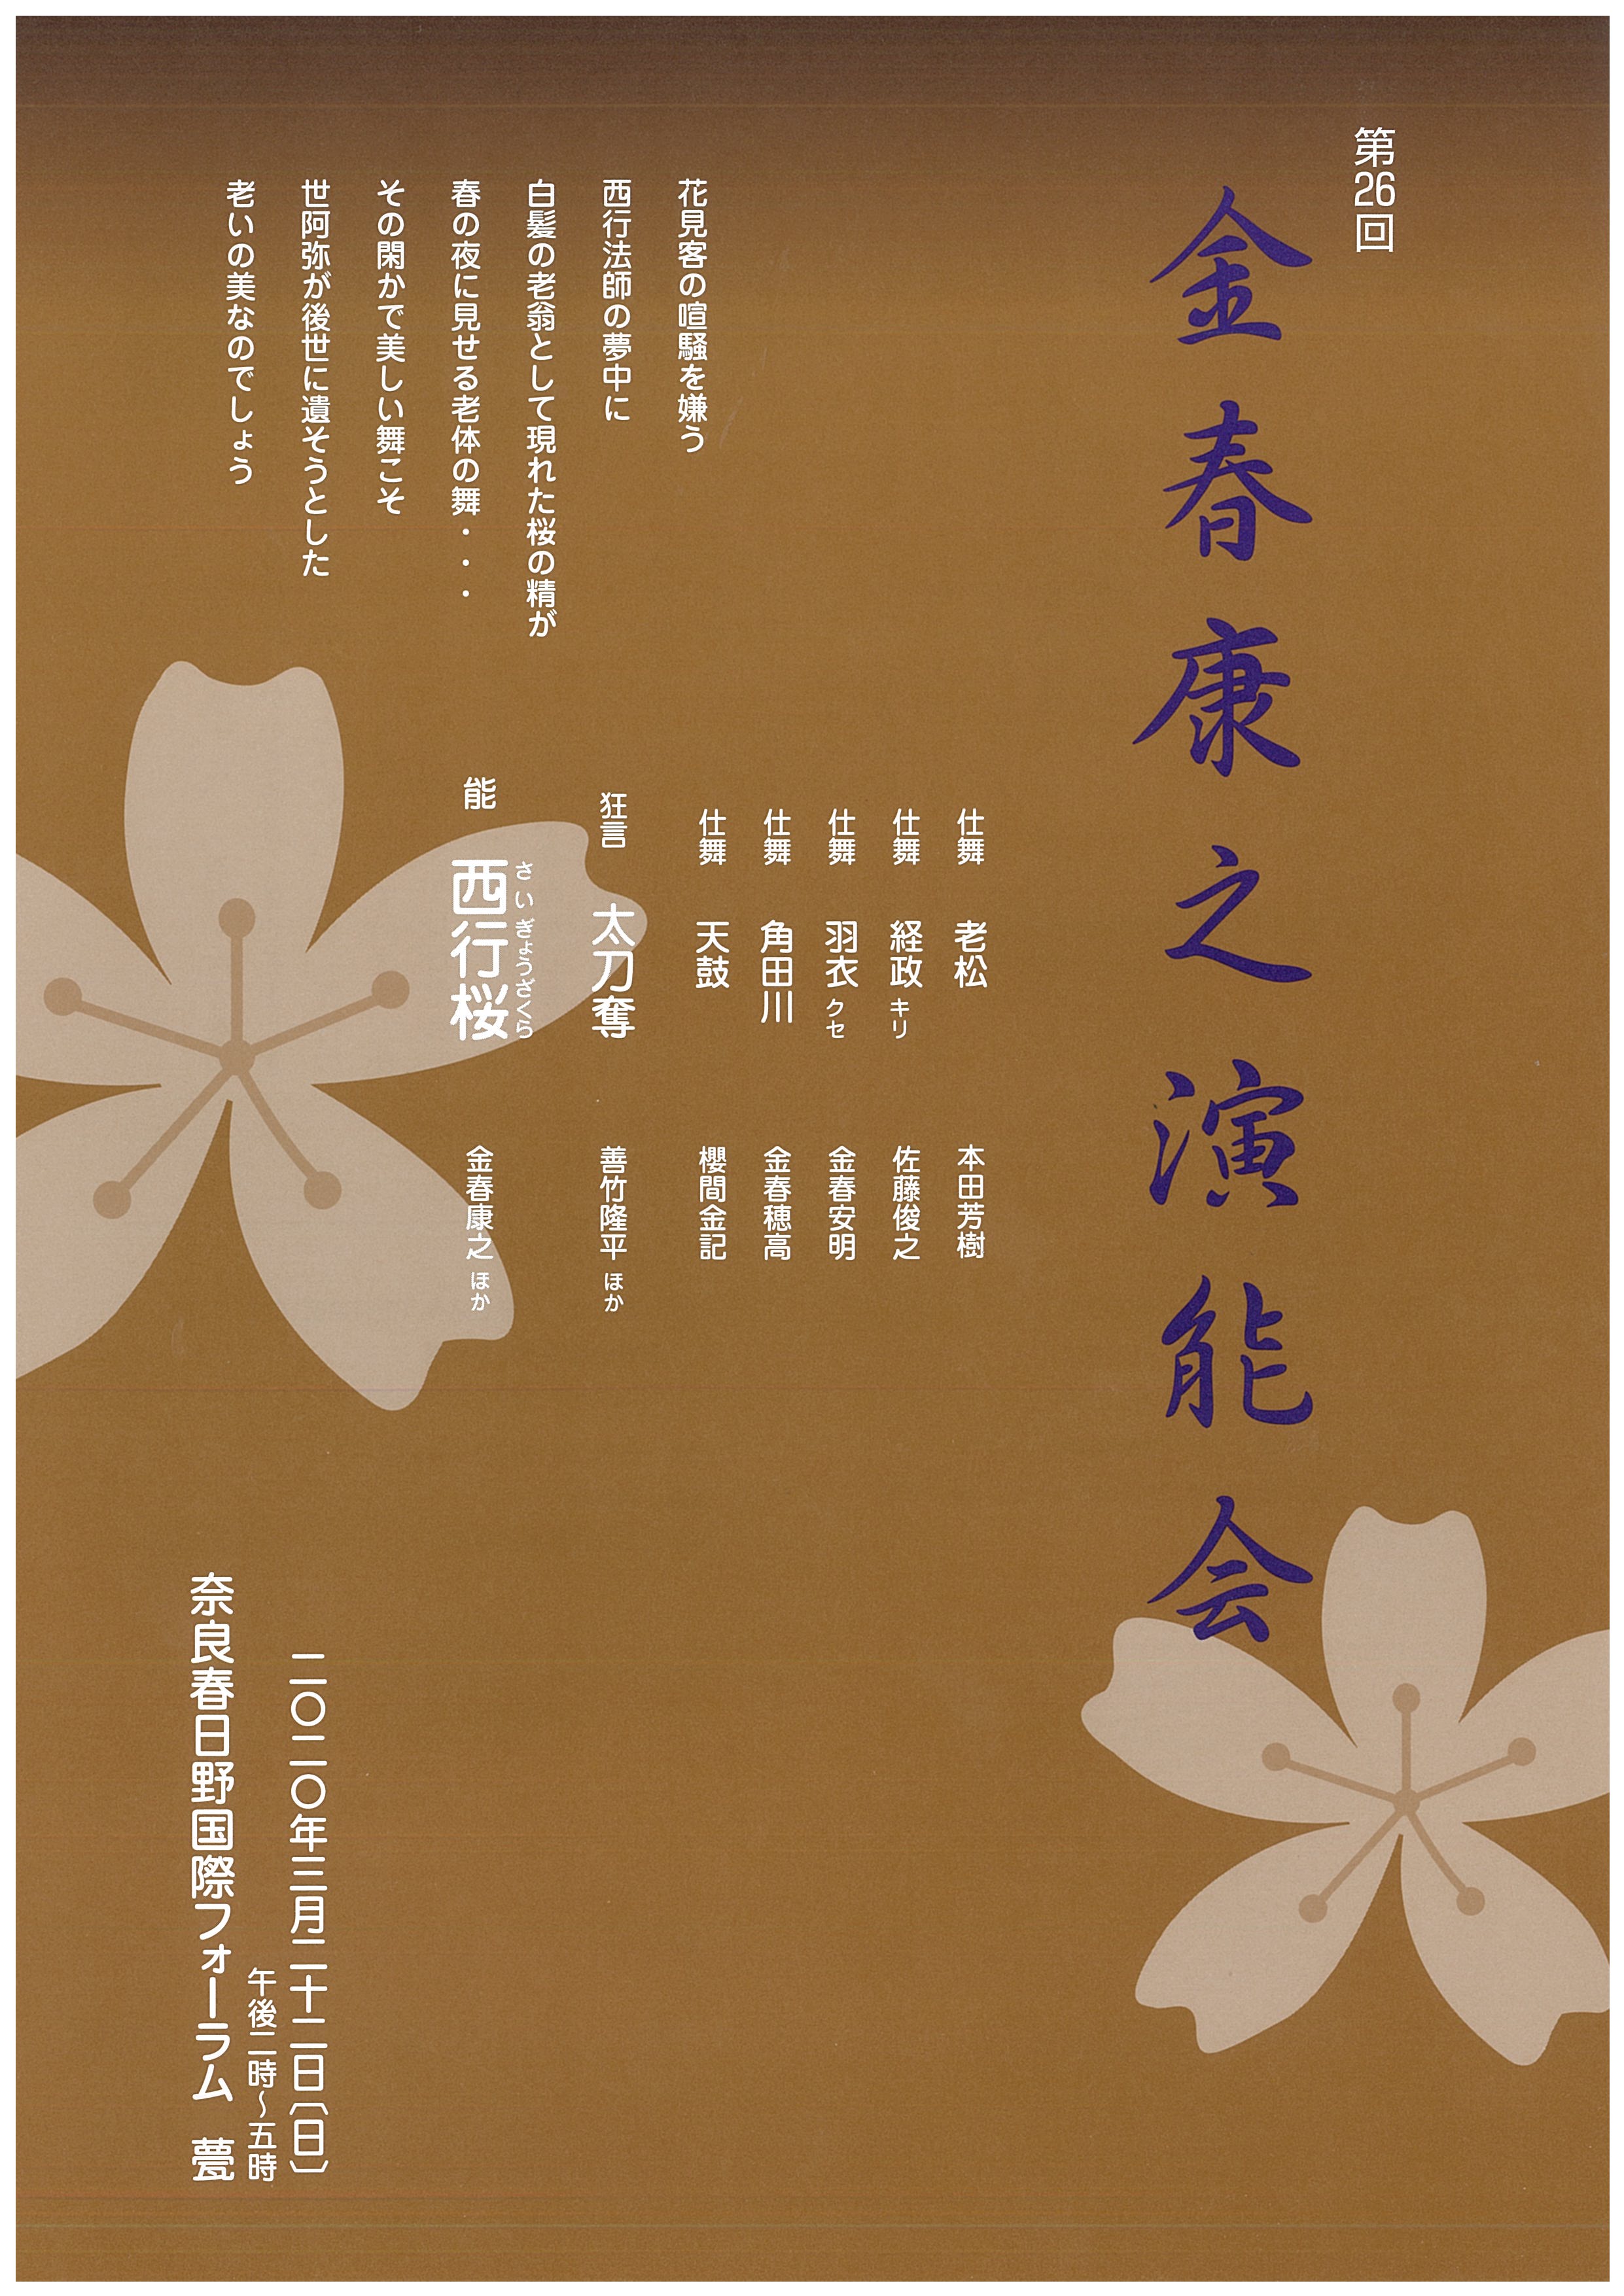 第26回
金春康之演能会
花見客の喧騒を嫌う
西行法師の夢中に
白髪の老翁として現れた桜の精が
春の夜に見せる老体の舞・・・
その閑かで美しい舞こそ
世阿弥が後世に遺そうとした
老いの美なのでしょう
仕舞 老松 本田芳樹
仕舞 経政 キリ 佐藤俊之
仕舞 羽衣 クセ 金春安明
仕舞 角田川 金春穂高
仕舞 天鼓 櫻間金記
狂言 太刀奪 善竹隆平 ほか
さいぎょうざくら
能 西行桜 金春康之 ほか
二〇二〇年三月二十二日〔日〕
午後二時~五時
奈良春日野国際フォーラム 甍